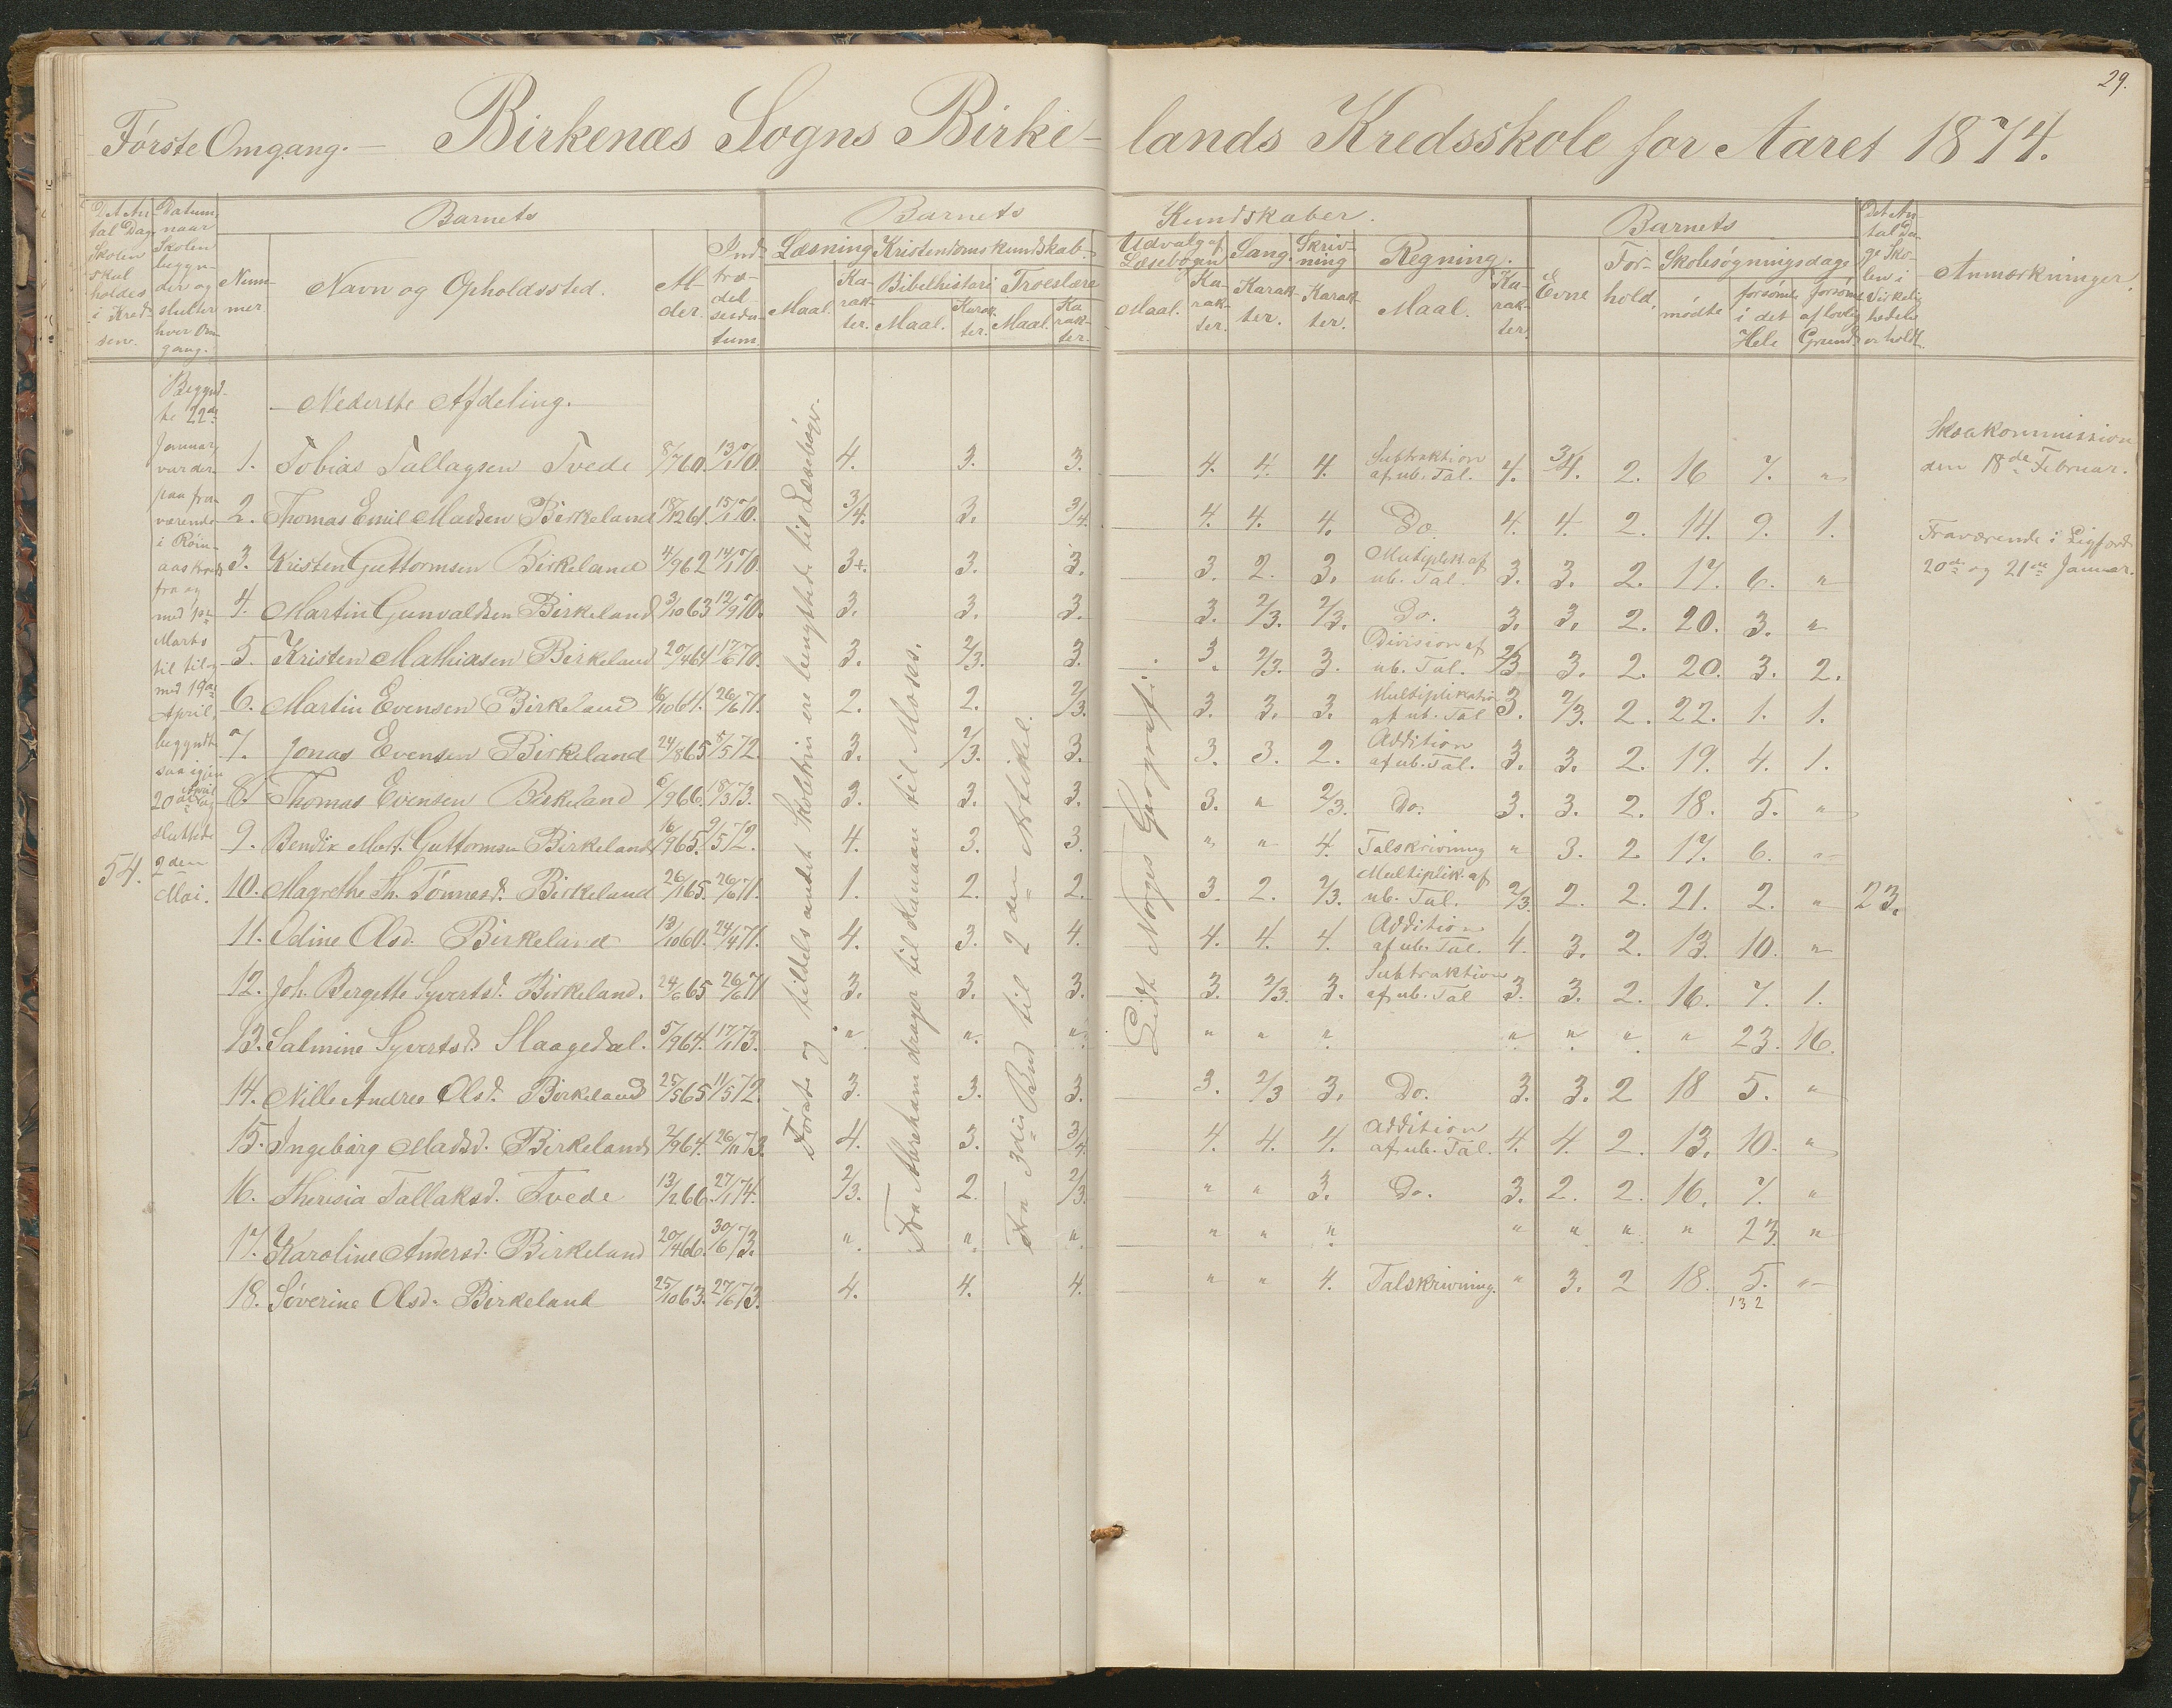 29.
Første Omgang. — Birkenæs Sogns Birkelands Kredsskole for Aaret 1874.
Det Antal Dage Skolen skal holdes i Kredsen.
Datum naar Skolen begynder og slutter hver Omgang.
Barnets
Nummer
Navn og Opholdssted.
Alder.
Indtrædelsesdatum.
Barnets Kundskaber.
Læsning
Maal.
Karakter.
Kristendomskundskab.
Bibelhistori
Maal.
Karakter.
Troeslære
Maal.
Karakter.
Udvalg af Læsebogen
Maal.
Karakter.
Sang.
Karakter.
Skrivning
Karakter.
Regning.
Maal.
Karakter.
Barnets
Evne
Forhold.
Skolesøgningsdage
mødte
forsømte i det Hele
forsømt af lovlig Grund.
Det Antal Dage Skolen i Virkeligheden er holdt.
Anmærkninger.
Begyndte 22de Januar, var derpaa fraværende i
fra og med 1ste Marts til til og med 19de April, begyndte saa igjen 20de April og sluttede 2den Mai.
54.
Nederste Afdeling.
Første og tildels andet Skoletrin ere benyttede til Læsebøger.
Fra Abraham drager til Kanaan til Moses.
Fra 3die Bud til 2den Artikel.
Lidt Norges Geografi.
1. Tobias Tallagsen Tvede 8/7 60. 13/1 70. 4. 3. 3. 4. 4. 4. Subtraktion af ub. Tal. 4. 3/4. 2. 16 7. "
2. Thomas Emil Madsen Birkeland 18/12 61. 15/1 70. 3/4. 3. 3/4. 4. 4. 4. Do. 4. 4. 2. 14. 9. 1.
3. Kristen Guttormsen Birkeland 4/9 62 14/1 70. 3+. 3. 3. 3. 2. 3. Mutiplik. af ub. Tal. 3. 3. 2. 17. 6. "
4. Martin Gunvaldsen Birkeland 3/10 63 12/9 70. 3. 3. 3. 3. 2/3. 2/3. Do. 3. 3. 2. 20. 3. "
5. Kristen Mathiasen Birkeland 20/4 64 17/6 70. 3. 2/3. 3. 3. 2/3. 3. Division af ub. Tal. 2/3 3. 2. 20. 3. 2.
6. Martin Evensen Birkeland 16/10 61. 26/6 71. 2. 2. 2/3. 3. 3. 3. Multiplikation af ub. Tal 3. 2/3. 2. 22. 1. 1.
7. Jonas Evensen Birkeland 24/8 65 5/5 72. 3. 2/3. 3. 3. 3. 2. Addition af ub. Tal. 3. 3. 2. 19. 4. 1.
8. Thomas Evensen Birkeland 6/9 66. 18/3 73. 3. 3. 3. 3. " 2/3. Do. 3. 3. 2. 18. 5. "
9. Bendix Mart. Guttormsen Birkeland 16/9 65. 2/5 72. 4. 3. 3. " " 4. Talskrivning " 3. 2 17. 6. "
10. Magrethe Th. Tønnesd. Birkeland 26/1 65. 26/6 71. 1. 2. 2. 3. 2. 2/3. Multiplik. af ub. Tal. 2/3. 2. 2. 21. 2. " 23.
11. Odine Olsd. Birkeland 13/10 60. 24/4 71. 4. 3. 4. 4. 4. 4. Addition af ub. Tal. 4. 3. 2. 13. 10. "
12. Joh. Bergette Syvertsd. Birkeland. 24/6 65 26/6 71 3. 3. 3. 3. 2/3. 3. Subtraktion af ub. Tal 3. 3. 2. 16. 7. 1.
13. Salmine Syvertsd. Flaagedal. 5/9 64. 17/1 73. " " " " " " " " " " 23. 16.
14. Nille Andree Olsd. Birkeland 25/5 65 11/5 72. 3. 3. 3. 3. 2/3 3. Do. 3. 3. 2 18 5. "
15. Ingebørg Madsd. Birkeland 2/9 64. 26/11 73. 4. 3. 3/4. 4. 4. 4. Addition af ub. Tal. 4. 4. 2. 13. 10. "
16. Therisia Tallaksd. Tvede 13/12 66. 27/1 74. 2/3. 2. 2/3. " " 3. Do. 3. 2. 2. 16. 7. "
17. Karoline Andersd. Birkeland 20/4 66. 30/6 73. " " " " " " " " " " 23. "
18. Søverine Olsd. Birkeland 25/10 63. 27/6 73. 4. 4. 4. " " 4. Talskrivning. " 3. 2 18. 5. "
132
den 18de Februar.
Fraværende i
20de og 21de Januar.